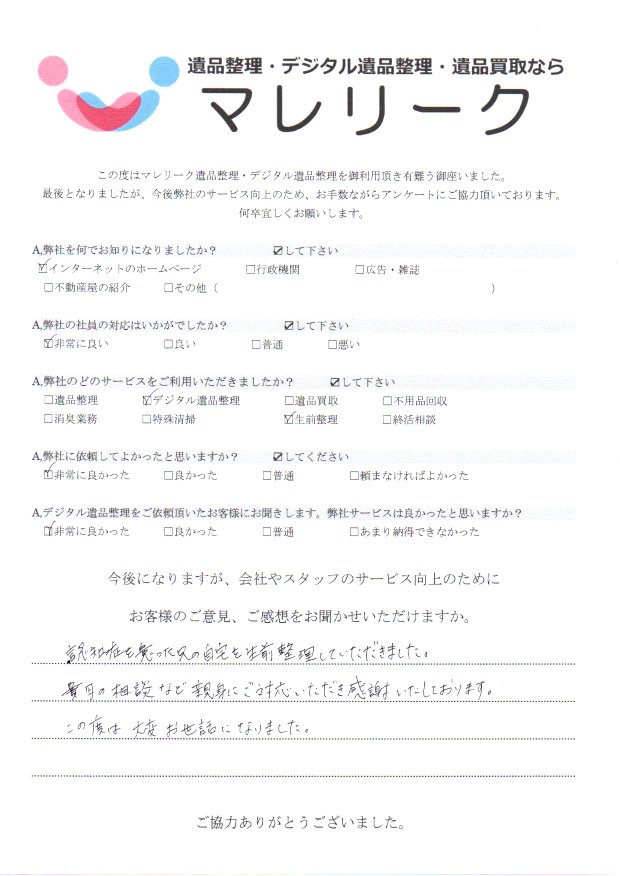 遺品整理・デジタル遺品整理・遺品買取なら
マレリーク
この度はマレリーク遺品整理・デジタル遺品整理を御利用頂き有難う御座いました。
最後となりましたが、今後弊社のサービス向上のため、お手数ながらアンケートにご協力頂いております。
何卒宜しくお願いします。
A,弊社を何でお知りになりましたか? ☑して下さい
☑インターネットのホームページ □行政機関 □広告・雑誌
□不動産屋の紹介 □その他( )
A,弊社の社員の対応はいかがでしたか? ☑して下さい
☑非常に良い □良い □普通 □悪い
A,弊社のどのサービスをご利用いただきましたか? ☑して下さい
□遺品整理 ☑デジタル遺品整理 □遺品買取 □不用品回収
□消臭業務 □特殊清掃 ☑生前整理 □終活相談
A,弊社に依頼してよかったと思いますか? ☑してください
☑非常に良かった □良かった □普通 □頼まなければよかった
A,デジタル遺品整理をご依頼頂いたお客様にお聞きします。弊社サービスは良かったと思いますか?
☑非常に良かった □良かった □普通 □あまり納得できなかった
今後になりますが、会社やスタッフのサービス向上のために
お客様のご意見、ご感想をお聞かせいただけますか。
認知症を患った父の自宅を生前整理していただきました。
の相談など親身にご対応いただき感謝いたしております。
この度は大変お世話になりました。
ご協力ありがとうございました。